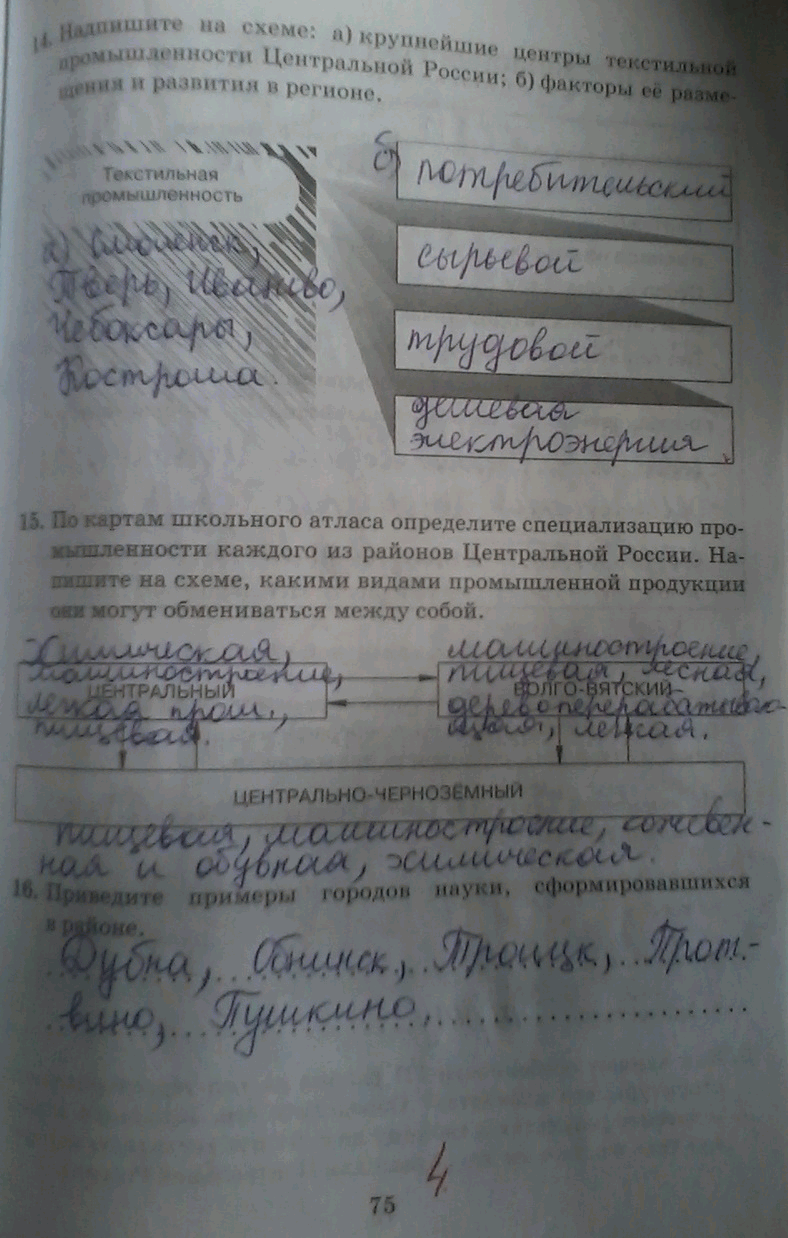 14. Надпишите на схеме: а) крупнейшие центры текстильной
промышленности Центральной России; б) факторы её разме-
щения и развития в регионе.
Текстильная
промышленность
а) Смоленск,
Тверь, Иваново,
Чебоксары,
Кострома.
б)
потребительский
сырьевой
трудовой
дешевая
электроэнергия
15. По картам школьного атласа определите специализацию про-
мышленности каждого из районов Центральной России. На-
пишите на схеме, какими видами промышленной продукции
они могут обмениваться между собой.
Химическая,
машиностроение,
ЦЕНТРАЛЬНЫЙ
легкая пром.,
пищевая.
машиностроение,
пищевая, лесная,
ВОЛГО-ВЯТСКИЙ
деревоперерабатываю-
щая, легкая.
ЦЕНТРАЛЬНО-ЧЕРНОЗЁМНЫЙ
пищевая, машиностроение, кожевен-
ная и обувная, химическая.
16. Приведите примеры городов науки, сформировавшихся
в районе.
Дубна, Обнинск, Троицк, Прот-
вино, Пушкино,
4
75